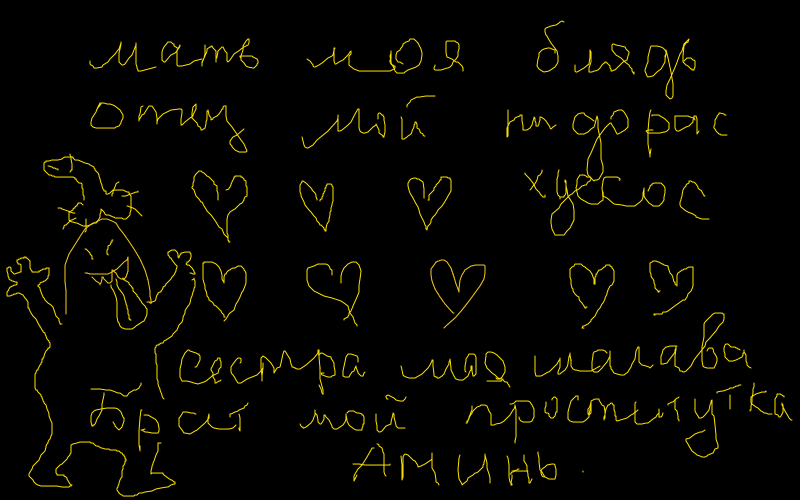 мать моя блядь
отец мой пидорас
хуесос
сестра моя шалава
Брат мой проститутка
Аминь.